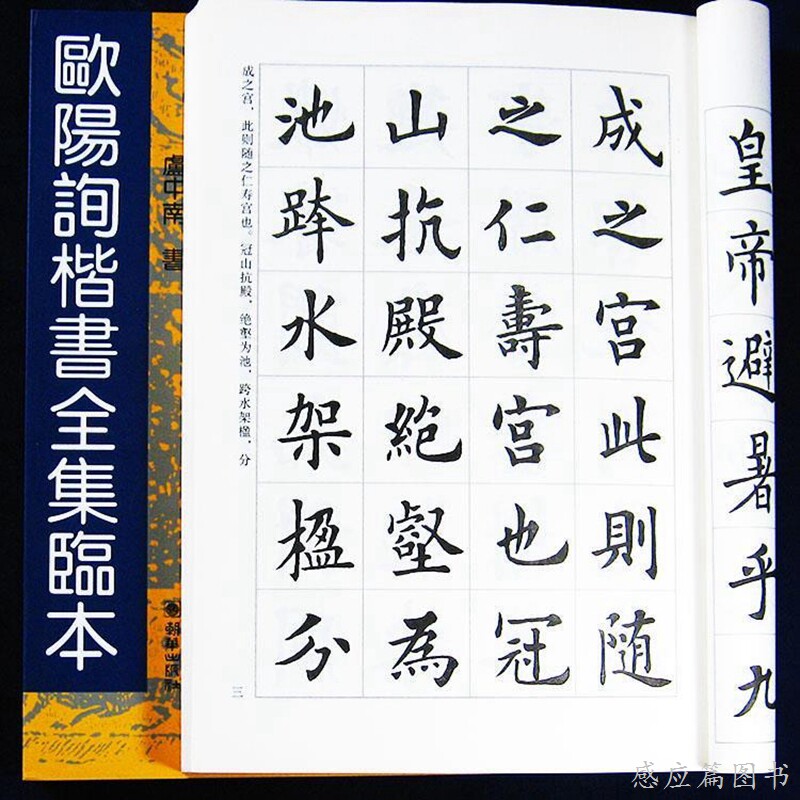 歐陽詢楷書全集臨本
盧中南 書
朝華出版社
皇帝避暑乎九
成之宫此則随
之仁壽宫也冠
山抗殿絶壑為
池跨水架楹分
成之宫,此则随之仁寿宫也。冠山抗殿,绝壑为池,跨水架楹,分
三
感应篇图书